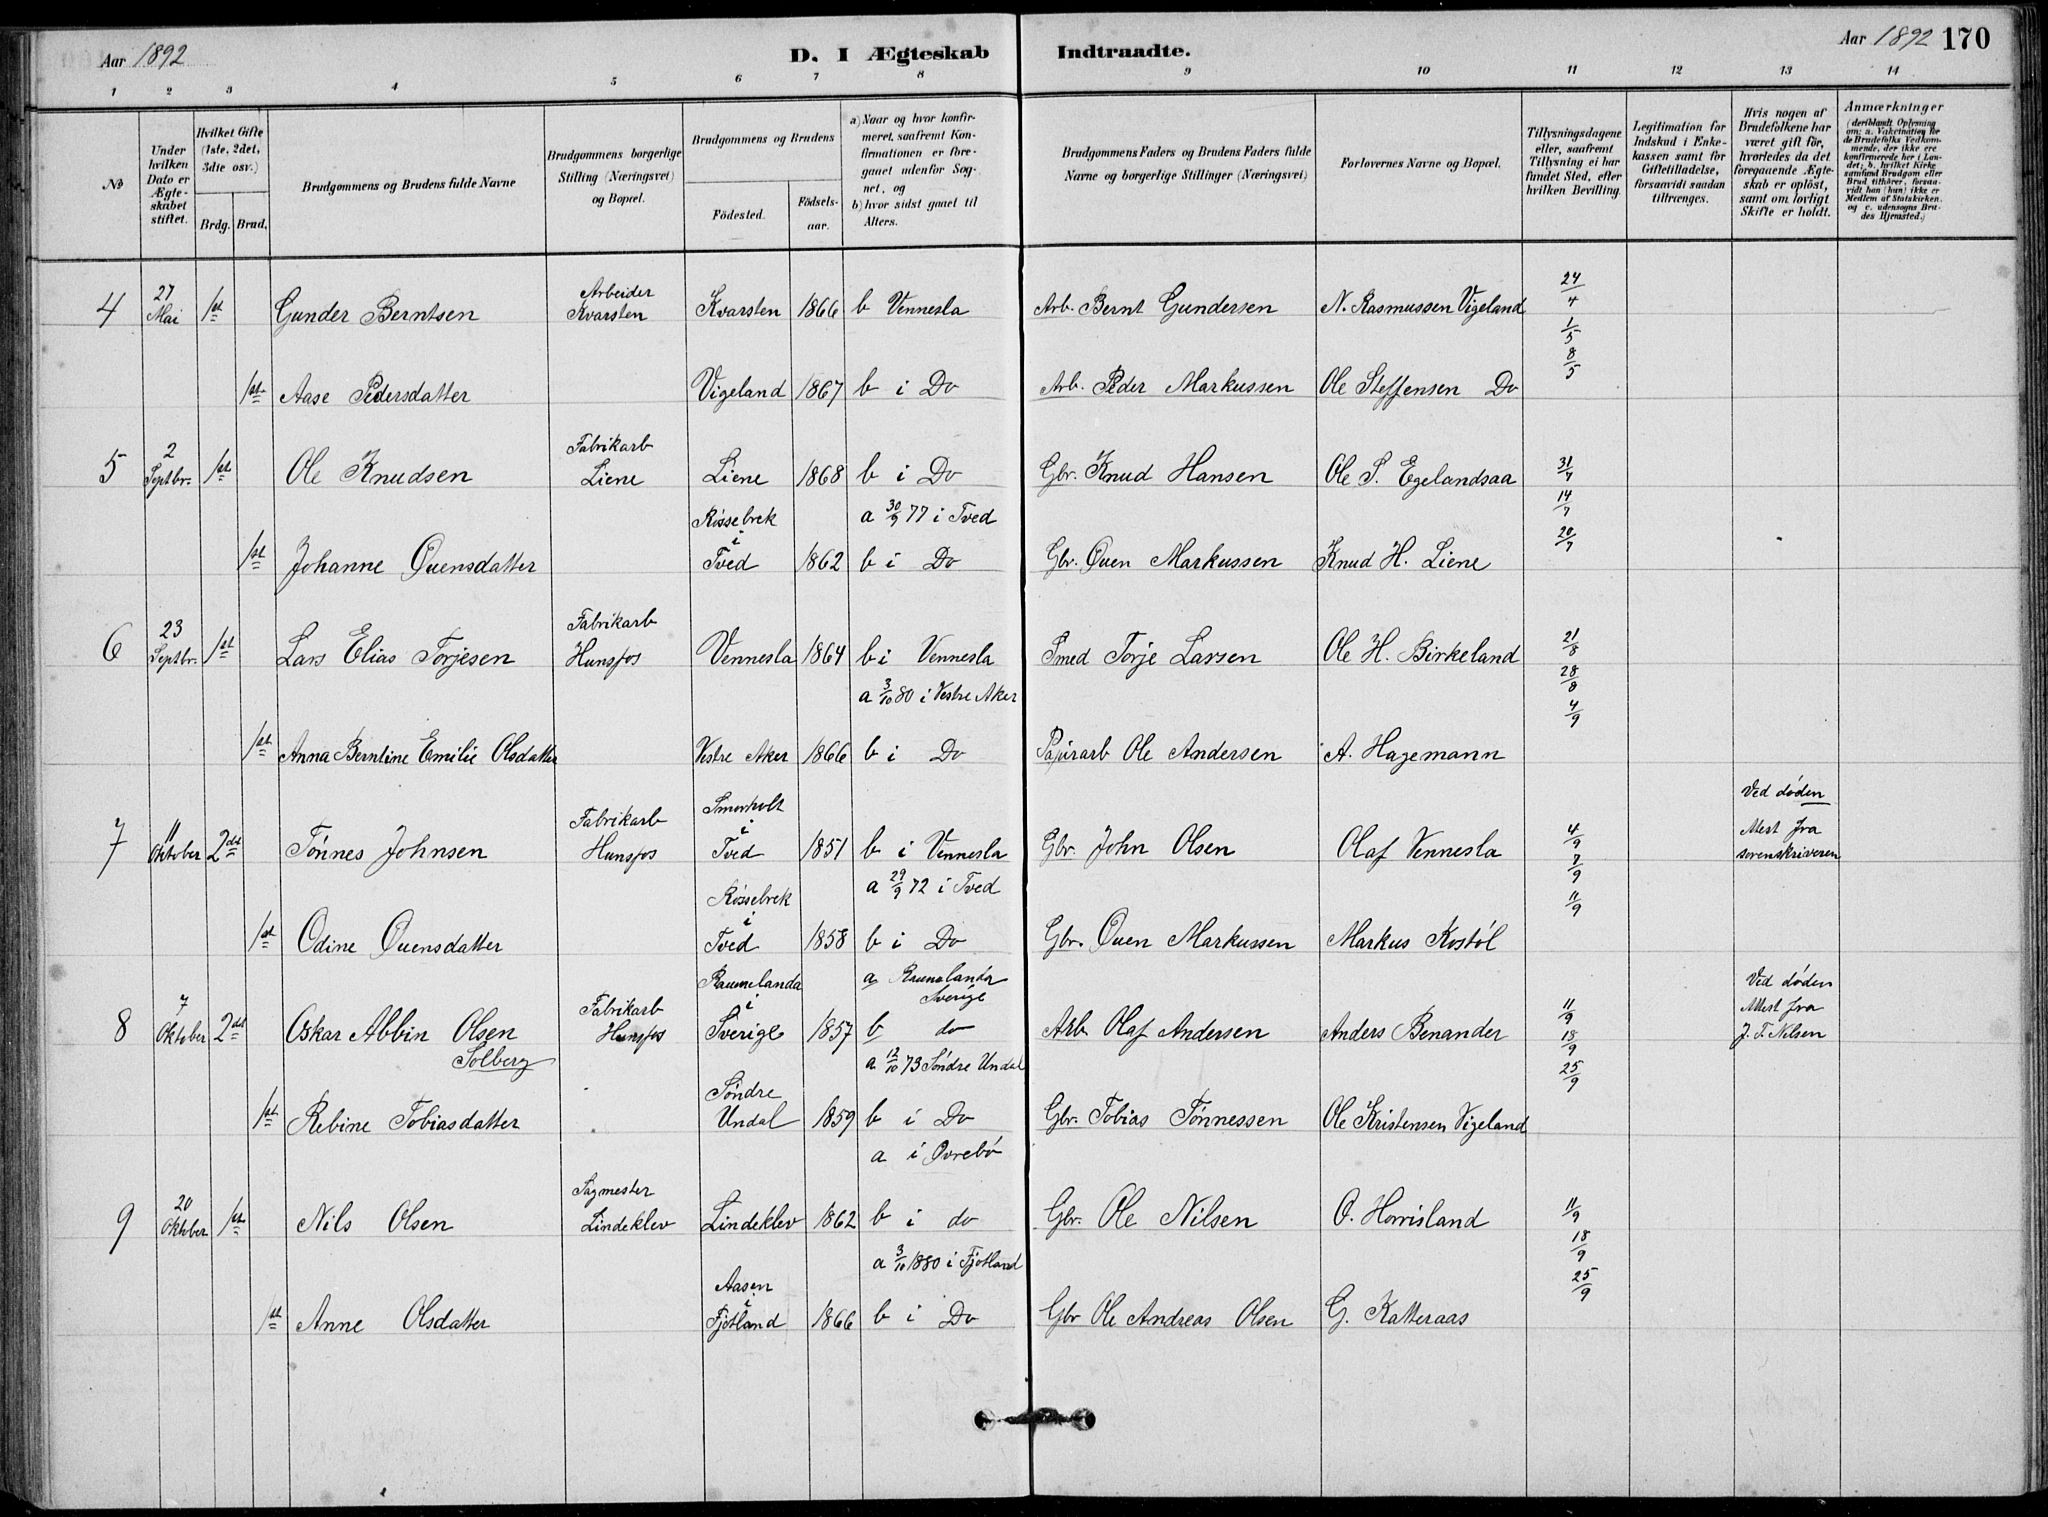 Aar 1892
D. I Ægteskab Indtraadte.
Aar 1892 170
1 2 3 4 5 6 7 8 9 10 11 12 13 14
No
Under hvilken Dato er Ægteskabet stiftet.
Hvilket Gifte (1ste, 2det, 3die osv.)
Brdg. Brud.
Brudgommens og Brudens fulde Navne
Brudgommens borgerlige Stilling (Næringsvei) og Bopæl.
Brudgommens og Brudens
Födested.
Födselsaar.
a) Naar og hvor konfirmeret, saafremt Konfirmationen er foregaaet udenfor Sognet, og
b) hvor sidst gaaet til Alters.
Brudgommens Faders og Brudens Faders fulde Navne og borgerlige Stillinger (Næringsvei)
Forlovernes Navne og Bopæl.
Tillysningsdagene eller, saafremt Tillysning ei har fundet Sted, efter hvilken Bevilling.
Legitimation for Indskud i Enkekassen samt for Giftetilladelse, forsaavidt saadan tiltrænges.
Hvis nogen af Brudefolkene har været gift før, hvorledes da det foregaaende Ægteskab er oplöst, samt om lovligt Skifte er holdt.
Anmærkninger (deriblandt Oplysning om: a. Vakcination for de Brudefolks Vedkommende, der ikke ere konfirmerede her i Landet; b. hvilket Kirkesamfund Brudgom eller Brud tilhører, forsaavidt han (hun) ikke er Medlem af Statskirken. og c. udensogns Brudes Hjemsted.)
4 27 Mai 1st Gunder Berntsen Arbeider Kvarsten Kvarsten 1866 b Vennesla Arb. Bernt Gundersen N. Rasmussen Vigeland 24/4 1/5 8/5
1st Aase Pedersdatter Vigeland 1867 b i Do Arb. Peder Markussen Ole Steffensen Do
5 2 Septbr. 1st Ole Knudsen Fabrikarb Liene Liene 1868 b i Do Gbr. Knud Hansen Ole S. Egelandsaa 31/7 14/7 20/7
1st Johanne Ouensdatter Rissebrek i Tved 1862 a 30/9 77 i Tved b i Do Gbr. Ouen Markussen Knud H. Liene
6 23 Septbr. 1st Lars Elias Torjesen Fabrikarb Hunsfos Vennesla 1864 b i Vennesla Smed Torje Larsen Ole H. Birkeland 21/8 28/8 4/9
1st Anna Berntine Emilie Olsdatter Vestre Aker 1866 a 3/10 80 i Vestre Aker b i Do Papirarb Ole Andersen A. Hagemann
7 11 Oktober 2det Tönnes Johnsen Fabrikarb Hunsfos i Tved 1851 b i Vennesla Gbr. John Olsen Olaf Vennesla 4/9 7/9 11/9 Ved döden Attest fra sorenskriveren
1st Odine Ouensdatter Rissebrek i Tved 1858 a 29/9 72 i Tved b i Do Gbr. Ouen Markussen Markus Kostöl
8 7 Oktober 2det Oskar Abbin Olsen Solberg Fabrikarb Hunsfos Raumelanda i Sverige 1857 a Raumelanda Sverige b do Arb Olaf Andersen Anders Benander 11/9 18/9 25/9 Ved döden Attest fra J. F. Nilsen
1st Rebine Tobiasdatter Söndre Undal 1859 a 12/10 73 Söndre Undal b i Do Gbr. Tobias Tönnessen Ole Kristensen Vigeland
9 20 Oktober 1st Nils Olsen Sagmester Lindeklev Lindeklev 1862 a i Övrebö b i do Gbr. Ole Nilsen O. Horrisland 11/9 18/9 25/9
1st Anne Olsdatter Aasen i Fjotland 1866 a 3/10 1880 i Fjotland b i Do Gbr Ole Andreas Olsen G. Katteraas